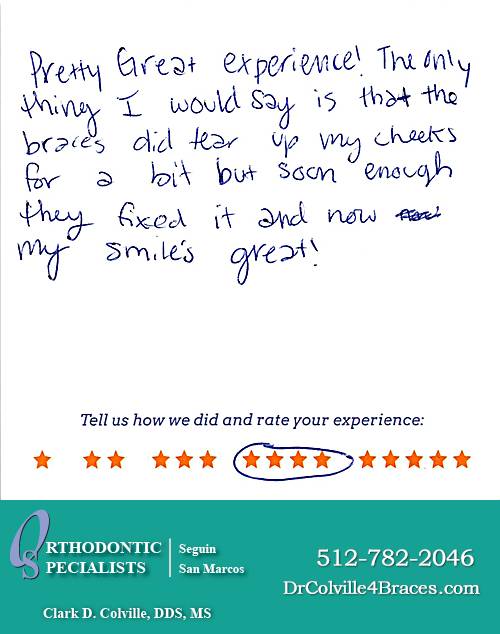 Pretty Great experience! The only
thing I would say is that the
braces did tear up my cheeks
for a bit but soon enough
they fixed it and now
my smile's great!
Tell us how we did and rate your experience:
ORTHODONTIC
SPECIALISTS
Seguin
San Marcos
512-782-2046
DrColville4Braces.com
Clark D. Colville, DDS, MS